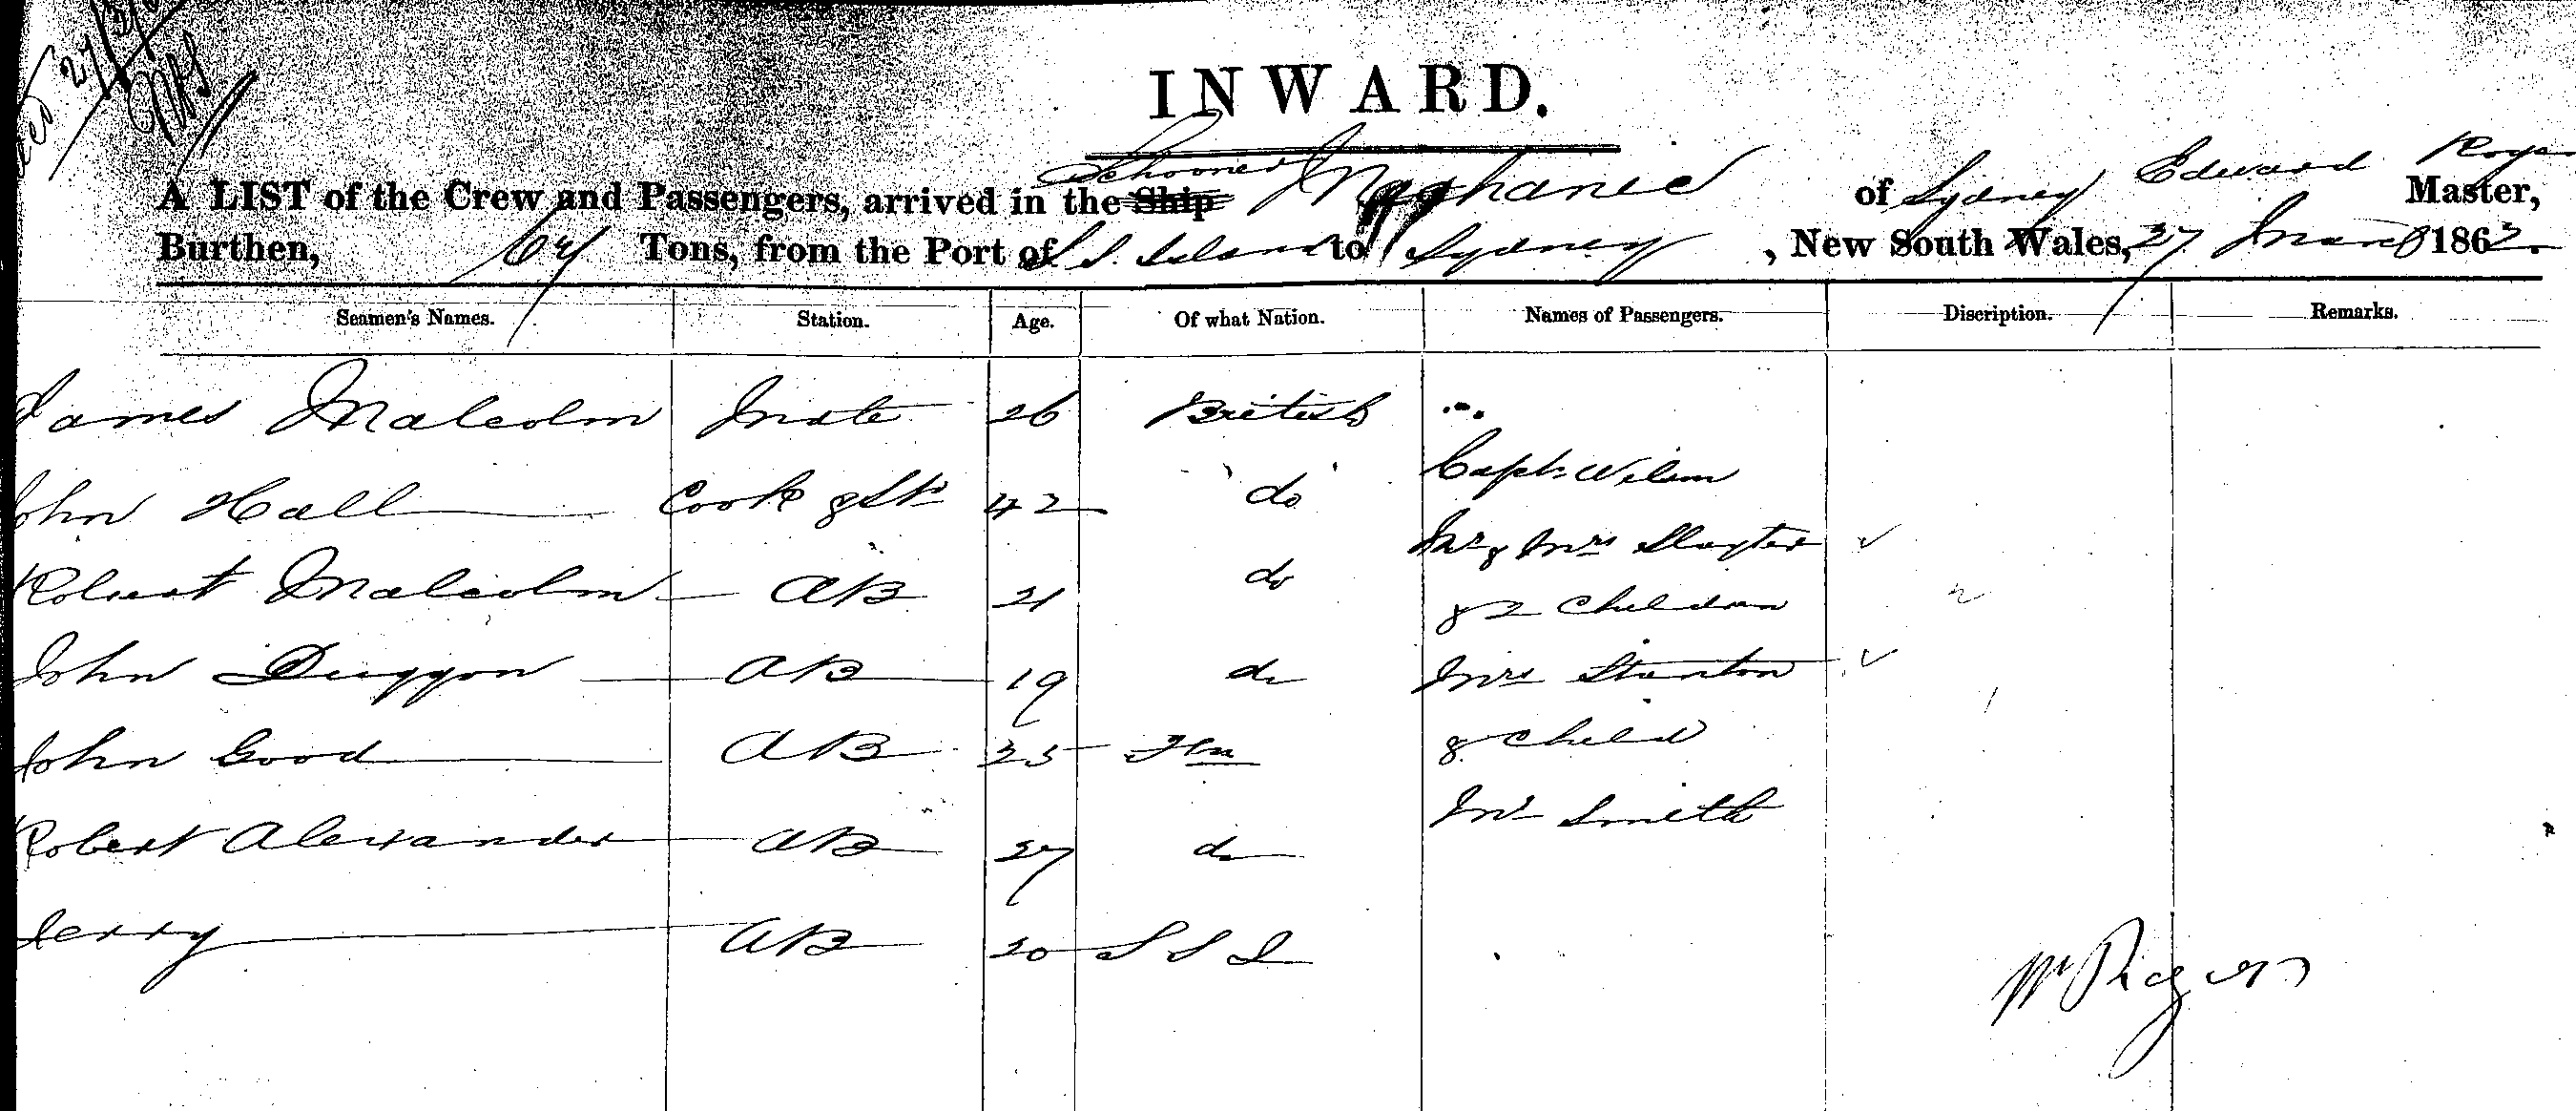 27/3/6
INWARD.
A LIST of the Crew and Passengers, arrived in the Ship Schooner of Sydney Edward Master,
Burthen, Tons, from the Port of S. S. Island to Sydney, New South Wales, 27 March 1862.
Seamen's Names. Station. Age. Of what Nation. Names of Passengers. Discription. Remarks.
James Malcolm Mate 26 British
John Hall Cook & St 42 do Capt. Wilson
Robert Malcolm AB 21 do Mr & Mrs Slayter
& 2 Children
John Duggon AB 19 do Mrs Stanton
John Good AB 25 & Child
Robert Alexander AB 27 do Mr Smith
Jerry AB 20 S S I